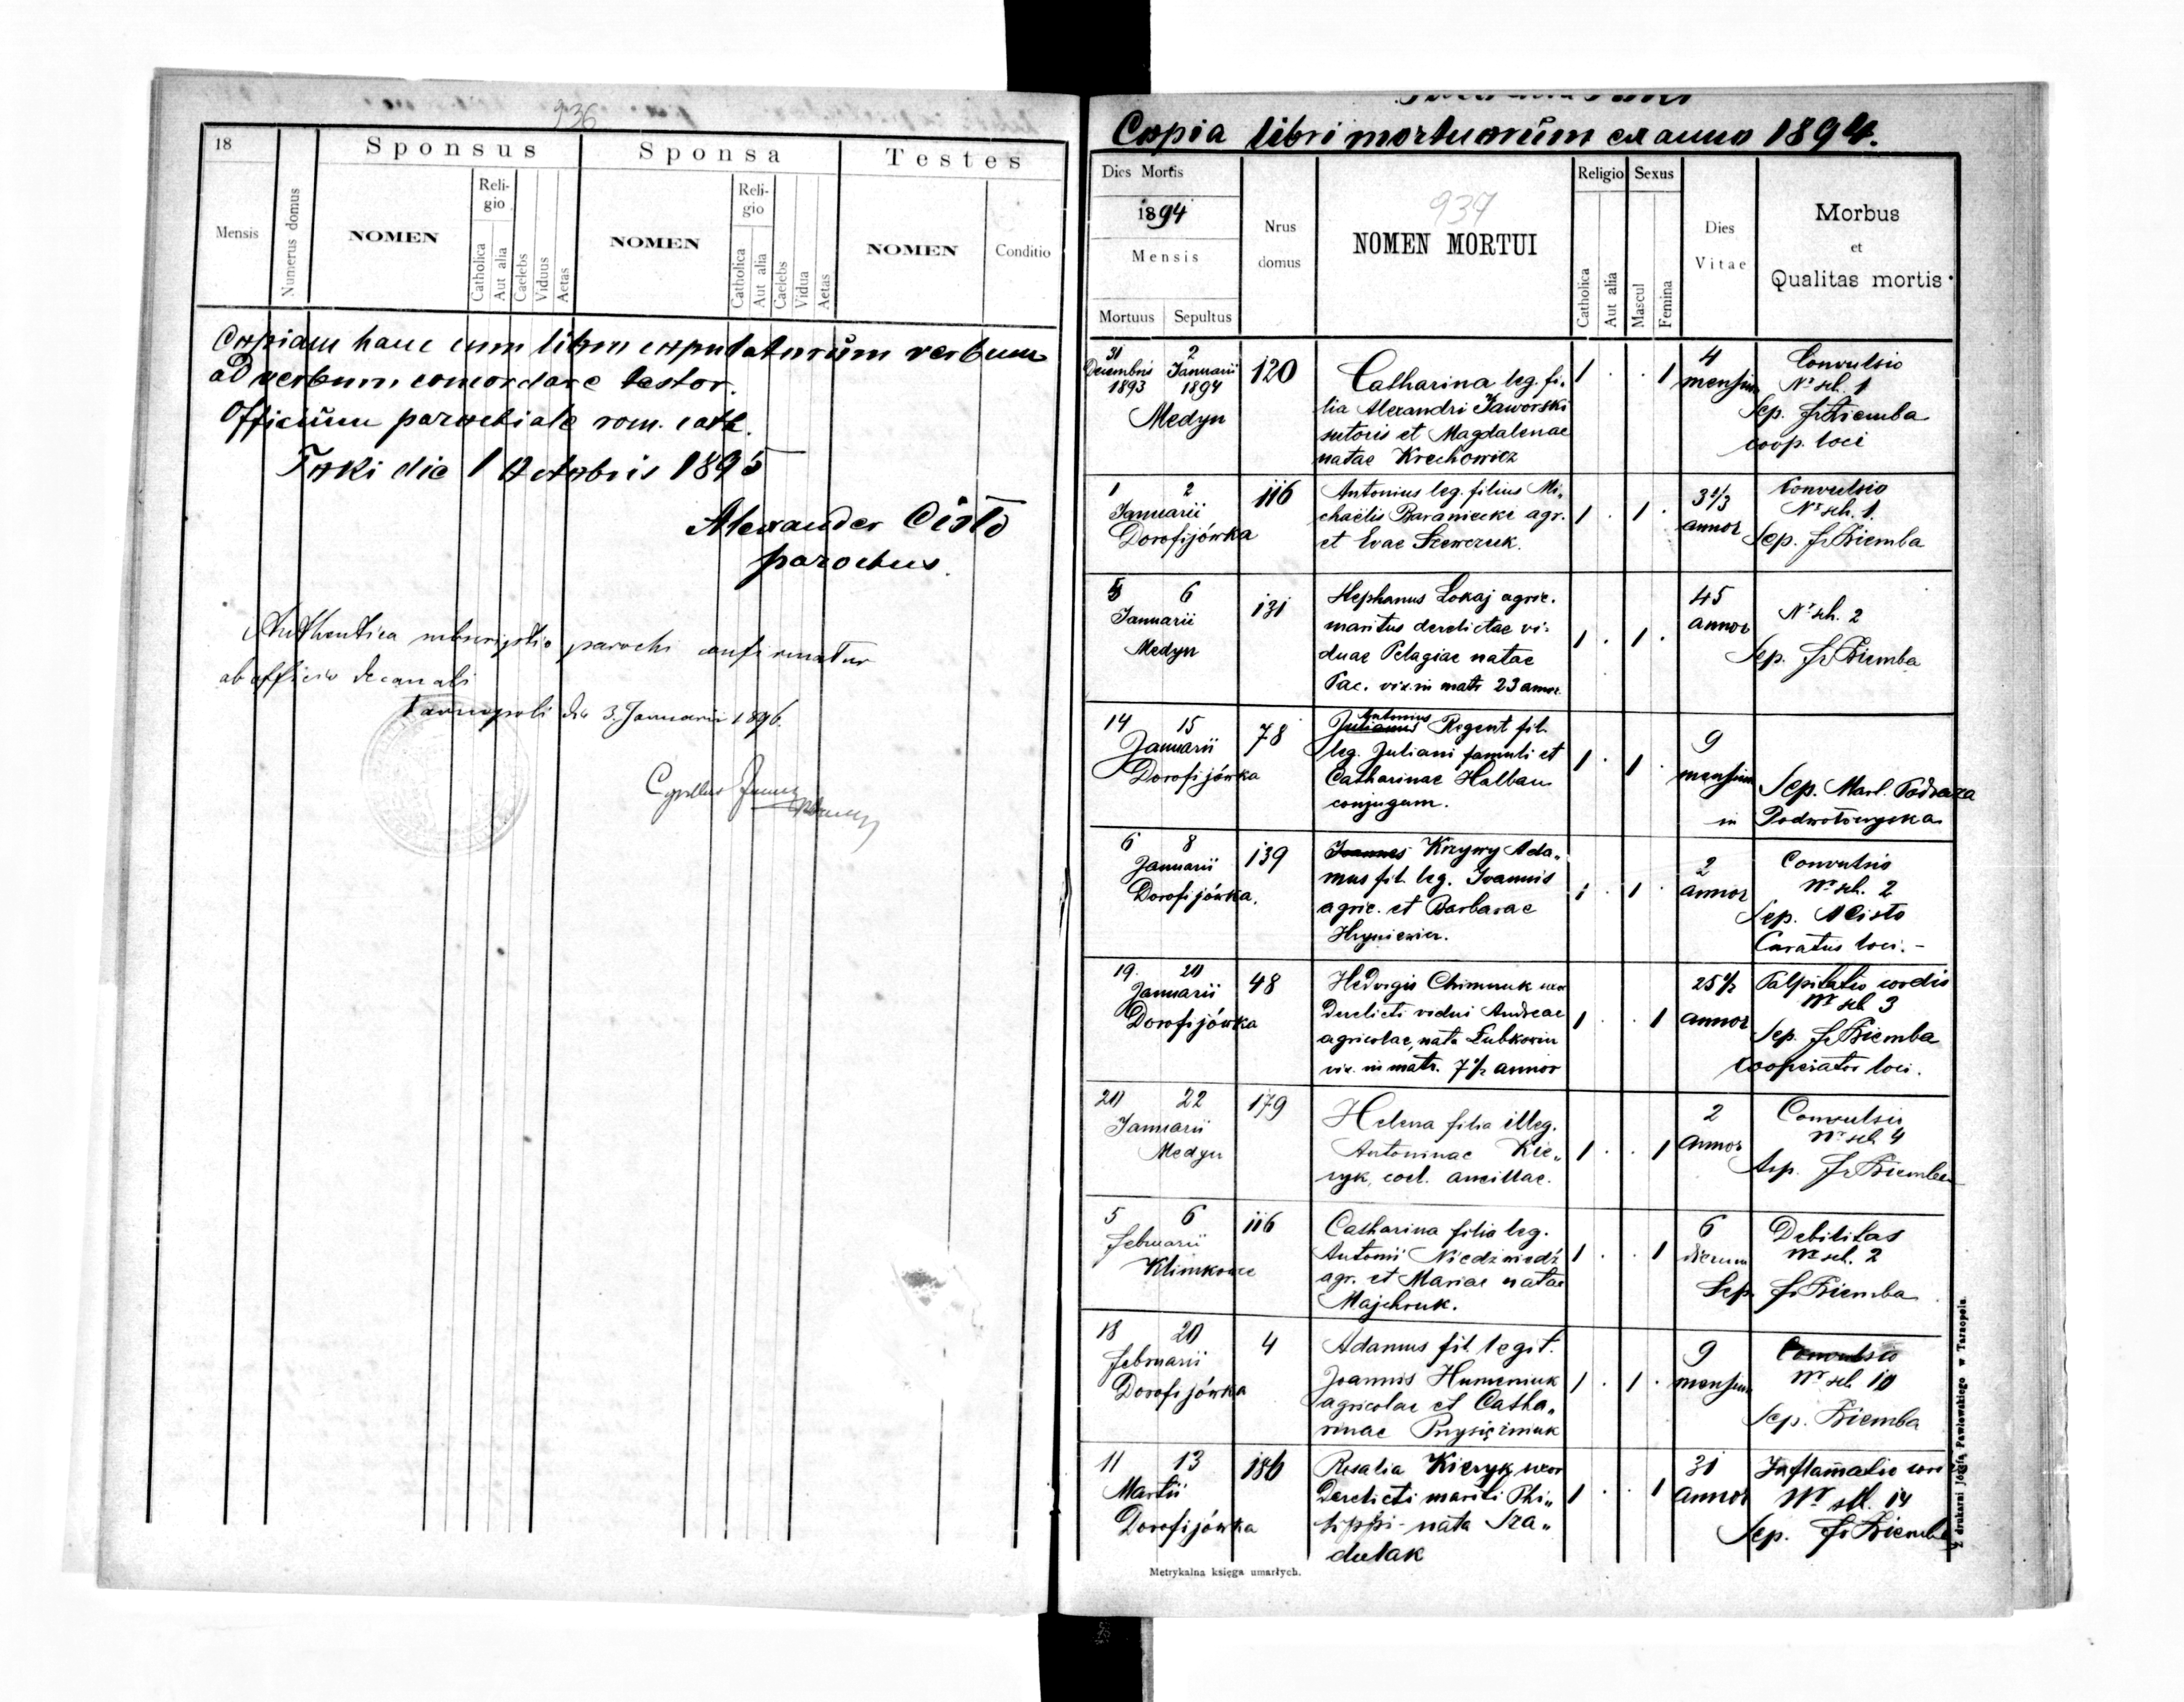 936
18
Sponsus
Sponsa
Testes
Mensis
Numerus domus
NOMEN
Reli-
gio
Catholica
Aut alia
Caelebs
Viduus
Aetas
NOMEN
Reli-
gio
Catholica
Aut alia
Caelebs
Vidua
Aetas
NOMEN
Conditio
Copiam hanc cum libro copulatorum verbum
ad verbum concordare testor.
Officium parochiale rom. cath.
Toki die 1 Octobris 1895
Alexander Cisło
parochus.
Authentica subscriptio parochi confirmatur
ab officio decanali
Tarnopoli die 3. Januarii 1896.
Cyrillus
Copia libri mortuorum ex anno 1894.
Dies Mortis
1894
Mensis
Mortuus
Sepultus
Nrus
domus
937
NOMEN MORTUI
Religio
Catholica
Aut alia
Sexus
Mascul
Femina
Dies
Vitae
Morbus
et
Qualitas mortis
31 2
Decembris Januarii 120
1893 1894
Medyn
Catharina leg. fi-
lia Alexandri Jaworski
sutoris et Magdalenae
natae Krechowicz
1 . . 1
4
mensium
Convulsio
Nr sch. 1
Sep. Fr Ziemba
coop. loci
1 2 116
Januarii
Dorofijówka
Antonius leg. filius Mi-
chaëlis Baraniecki agr.
et Evae Szewczuk.
1 . 1 .
3 1/3
annor
Convulsio
Nr sch. 1.
Sep. Fr Ziemba
5 6 131
Januarii
Medyn
Stephanus Lokaj agric.
maritus derelictae vi-
duae Pelagiae natae
Pac. vix. in matr 23 annor.
1 . 1 .
45
annor
Nr sch. 2
Sep. Fr Ziemba
14 15 78
Januarii
Dorofijówka
Antonius
Julianus Regent fil.
leg. Juliani famuli et
Catharinae Halban
conjugum.
1 . 1 .
9
mensium
Sep. Marl. Podraza
in Podwołoczyska
6 8 139
Januarii
Dorofijówka.
Joannes Krzywy Ada-
mus fil. leg. Joannis
agric. et Barbarae
Hryniewicz.
1 . 1 .
2
annor
Convulsio
Nr sch. 2
Sep. A Cisło
Curatus loci. -
19. 20 48
Januarii
Dorofijówka
Hedvigis Chimczuk uxor
Derelicti vidui Andreae
agricolae, nata Łubkowin
vix. in matr. 7 1/2 annor
1 . . 1
25 1/2
annor
Palpitatio cordis
Nr sch 3
Sep. Fr Ziemba
Cooperator loci.
20 22 179
Januarii
Medyn
Helena filia illeg.
Antoninae Kie-
ryk, coel. ancillae.
1 . . 1
2
annor
Convulsio
Nr sch 4
Sep. Fr Ziemba
5 6 116
Februarii
Klimkowce
Catharina filia leg.
Antonii Niedźwiedź
agr. et Mariae natae
Majchruk.
1 . . 1
6
dierum
Debilitas
Nr sch. 2
Sep Fr Ziemba
18 20 4
Februarii
Dorofijówka
Adamus fil. legit.
Joannis Humeniuk
agricolae et Catha-
rinae Prysiężniuk
1 . 1 .
9
mensium
Convulsio
Nr sch 10
Sep. Ziemba
11 13 186
Martii
Dorofijówka
Rosalia Kieryk, uxor
Derelicti mariti Phi-
lippi - nata Sza-
dulak
1 . . 1
31
annor
Inflamatio
Nr sch. 14
Sep. Fr Ziemba
Metrykalna księga umarłych.
Z drukarni Józefa Pawłowskiego w Tarnopolu.